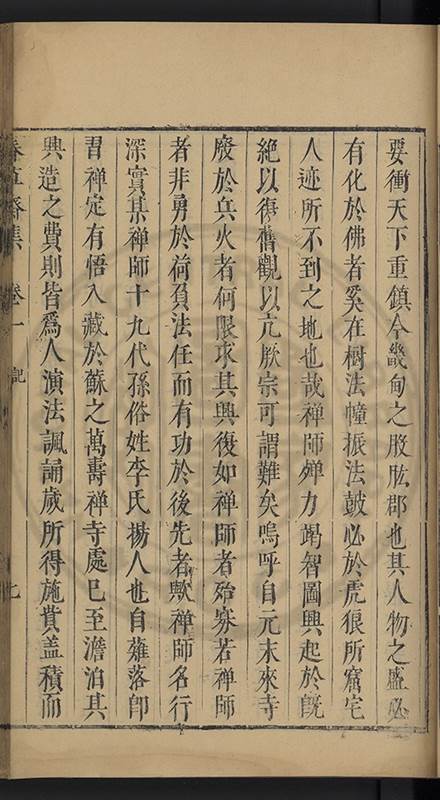 要衝天下重鎮今畿甸之股肱郡也其人物之盛必
有化於佛者奚在樹法幢振法鼓必於虎狼所窟宅
人迹所不到之地也哉禪師殫力竭智圖興起於旣
絶以復舊觀以亢厥宗可謂難矣嗚呼自元末來寺
廢於兵火者何限求其興復如禪師者殆寡若禪師
者非勇於荷負法任而有功於後先者歟禪師名行
深實某禪師十九代孫俗姓李氏揚人也自薙落卽
習禪定有悟入藏於蘇之萬壽禪寺處已至澹泊其
興造之費則皆爲人演法諷誦歲所得施貲盖積而
卷一 記 七